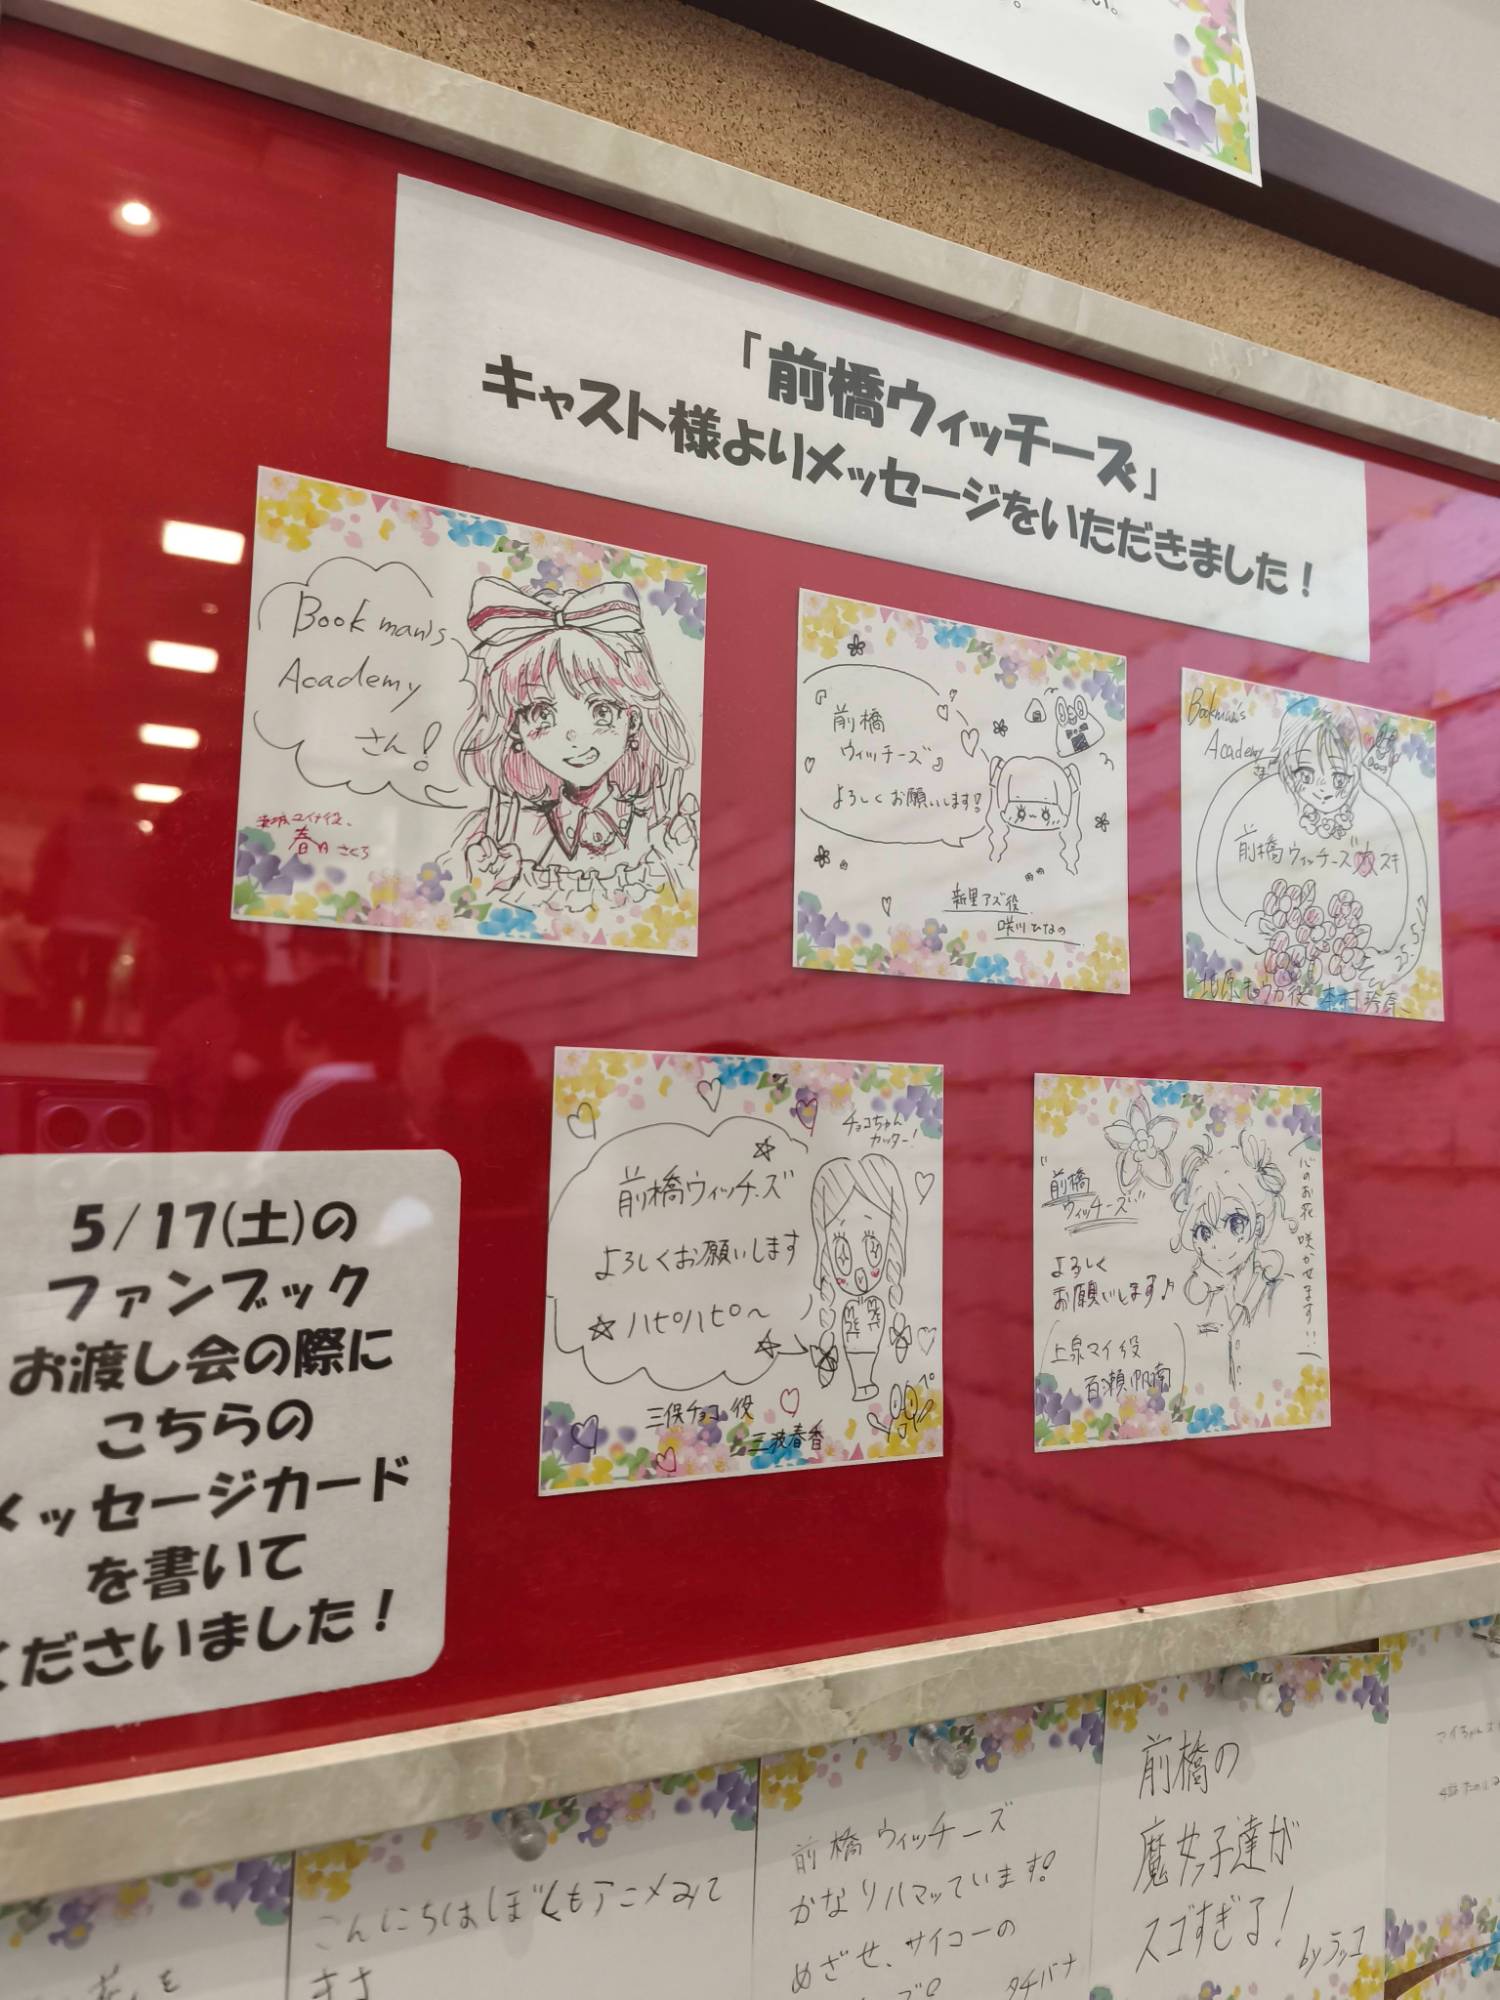 い。
「前橋ウィッチーズ」
キャスト様よりメッセージをいただきました！
Bookman's
Academy
さん！
春日さくら
『前橋
ウィッチーズ』
よろしくお願いします！
新里アズ役
咲川ひなの
Bookman's
Academy
さん
前橋ウィッチーズ大スキ
25.5.17
北原キョウカ役 本村玲奈
チョコちゃん
カッター！
前橋ウィッチーズ
よろしくお願いします
☆ハピハピ〜
三俣チョコ役
三波春香
"前橋
ウィッチーズ"
よろしく
お願いします♪
上泉マイ役
百瀬帆南
心のお花咲かせます
5/17(土)の
ファンブック
お渡し会の際に
こちらの
メッセージカード
を書いて
くださいました！
こんにちはぼくもアニメみて
前橋ウィッチーズ
かなりハマッています。
めざせ、サイコーの
タチバナ
前橋の
魔女っ子達が
スゴすぎる！
byラッコ